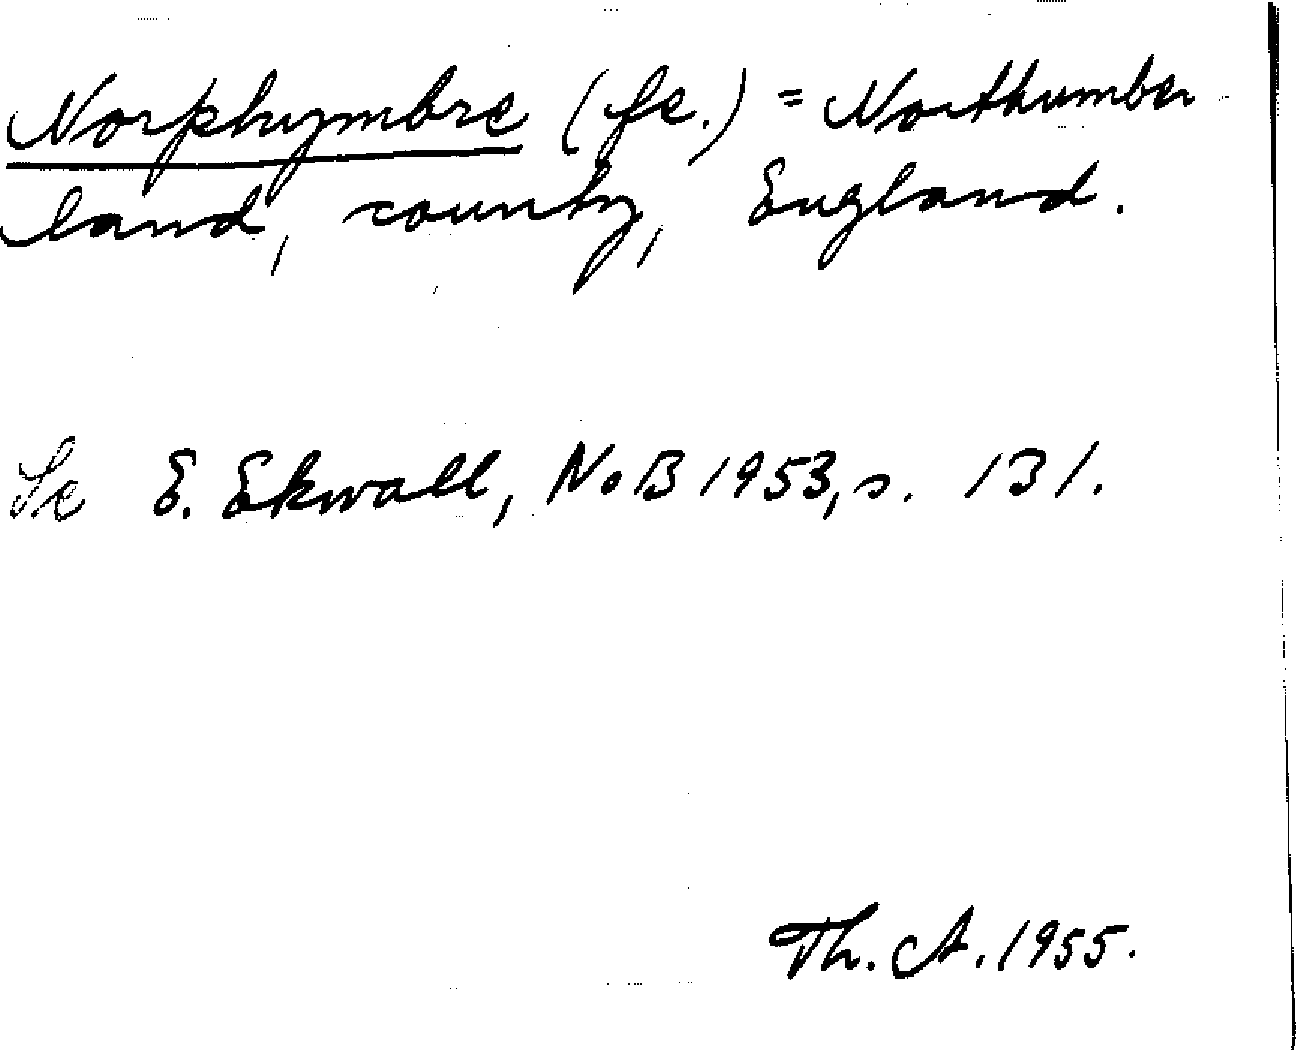 Norþhymbre (fe.) = Northumber
land, county, England.
Se E. Ekwall, NoB 1953, s. 131.
Th. A. 1955.